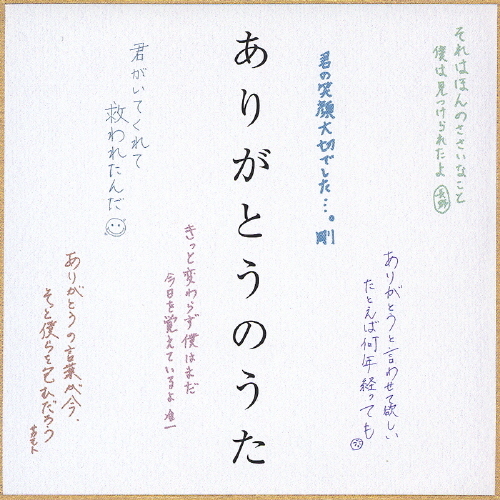 それはほんのささいなこと
僕は見つけられたよ
長野
君の笑顔大切でした…。剛
ありがとうと言わせて欲しい
たとえば何年経っても
ありがとうのうた
きっと変わらず僕はまだ
今日を覚えているよ 准一
君がいてくれて
救われたんだ
ありがとうの言葉が今、
そっと僕らを包むだろう